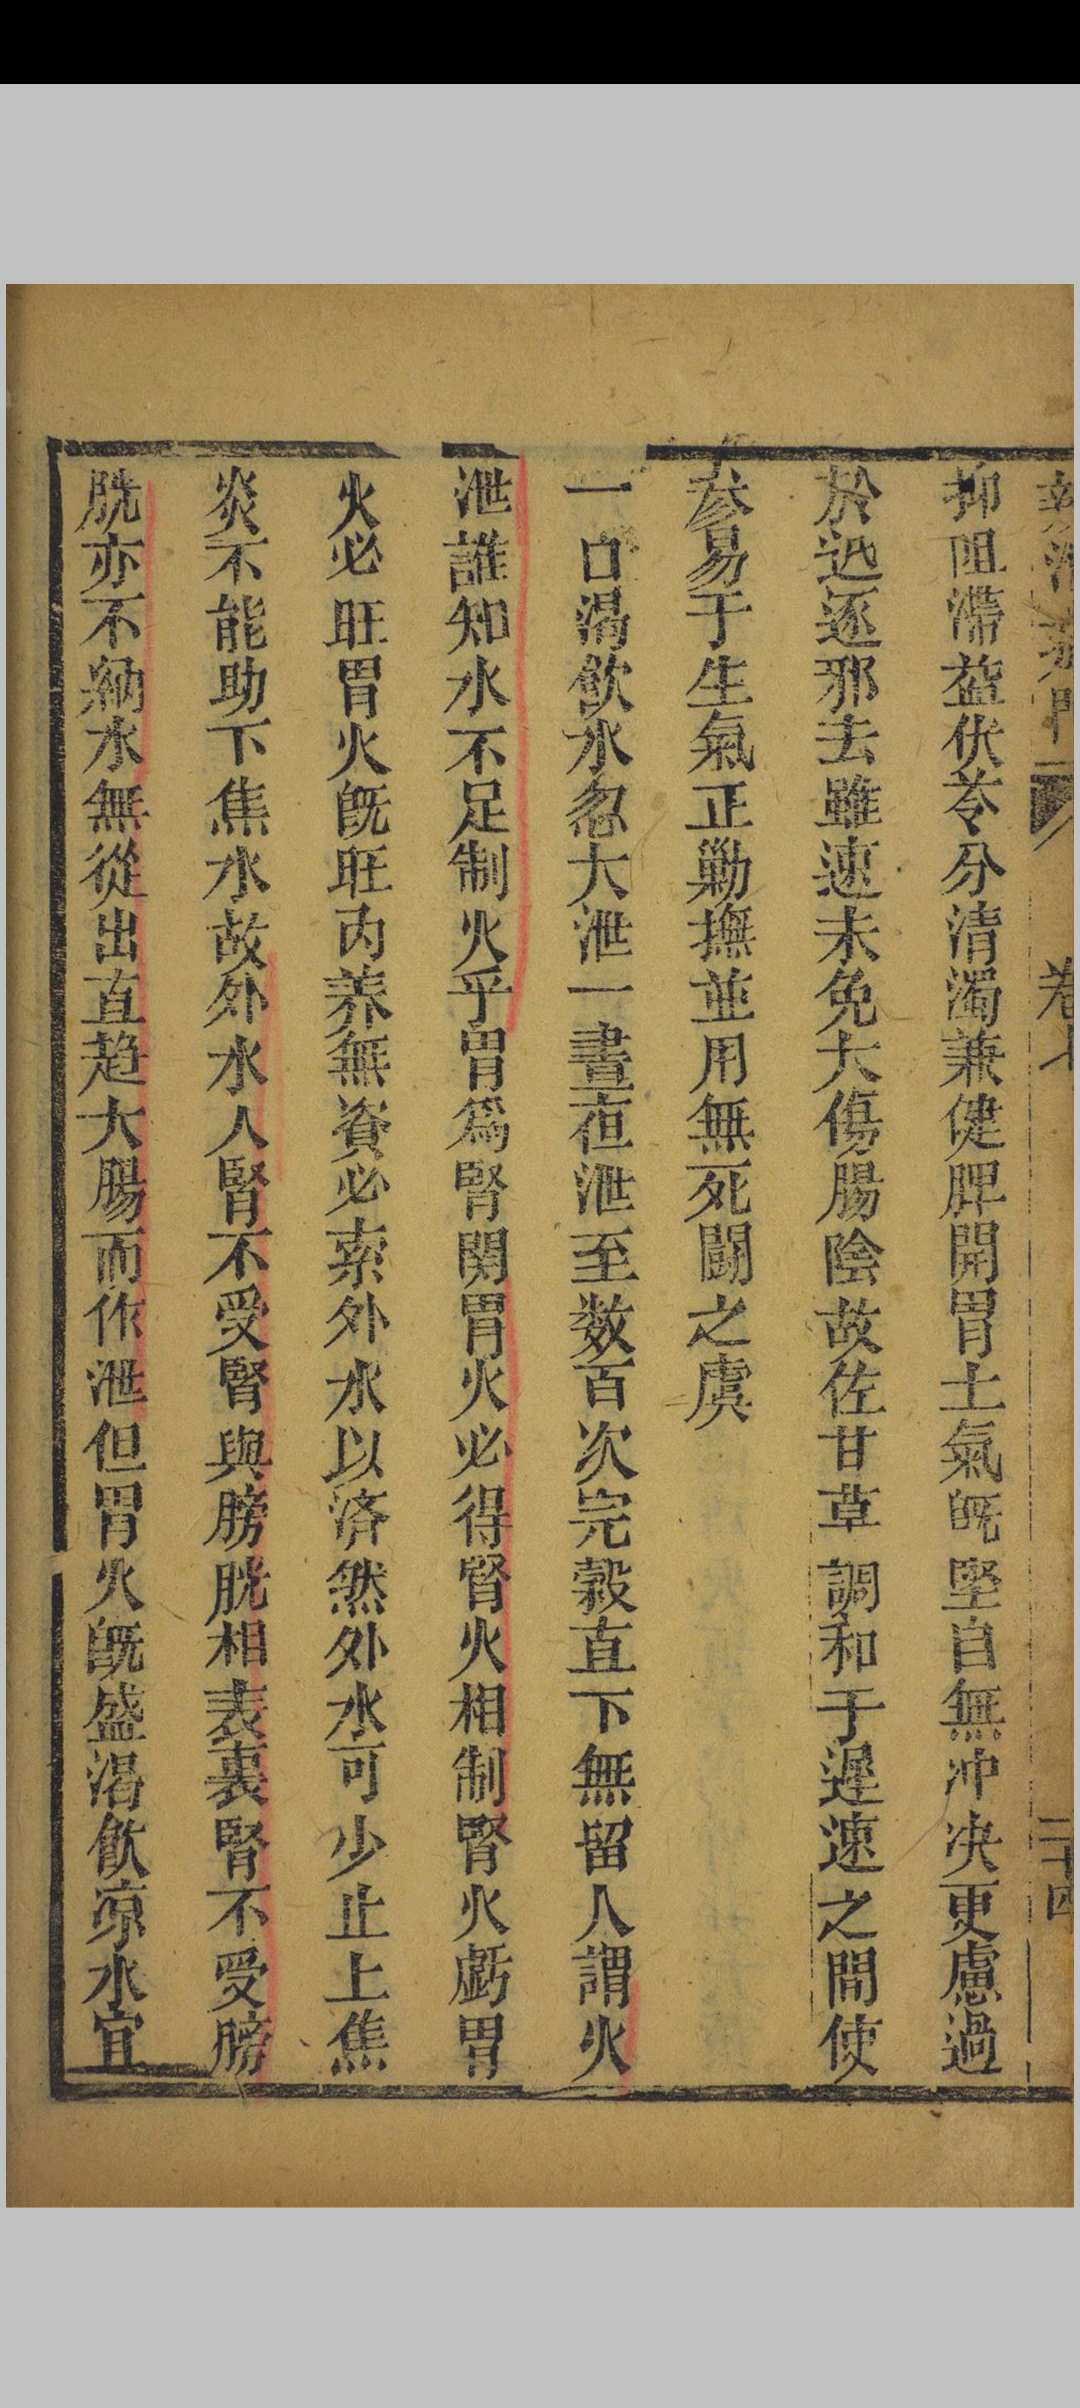 卷七 二十四
抑阻滯益茯苓分清濁兼健脾開胃土氣旣堅自無冲决更慮過
於迅逐邪去雖速未免大傷腸陰故佐甘草調和于遲速之間使
叅易于生氣正勦撫並用無死鬪之虞
一口渴飲水忽大泄一晝夜泄至数百次完穀直下無留人謂火
泄誰知水不足制火乎胃爲腎関胃火必得腎火相制腎火虧胃
火必旺胃火旣旺内养無資必索外水以济然外水可少止上焦
炎不能助下焦水故外水人腎不受腎與膀胱相表裏腎不受膀
胱亦不納水無從出直趋大腸而作泄但胃火旣盛渴飲凉水宜